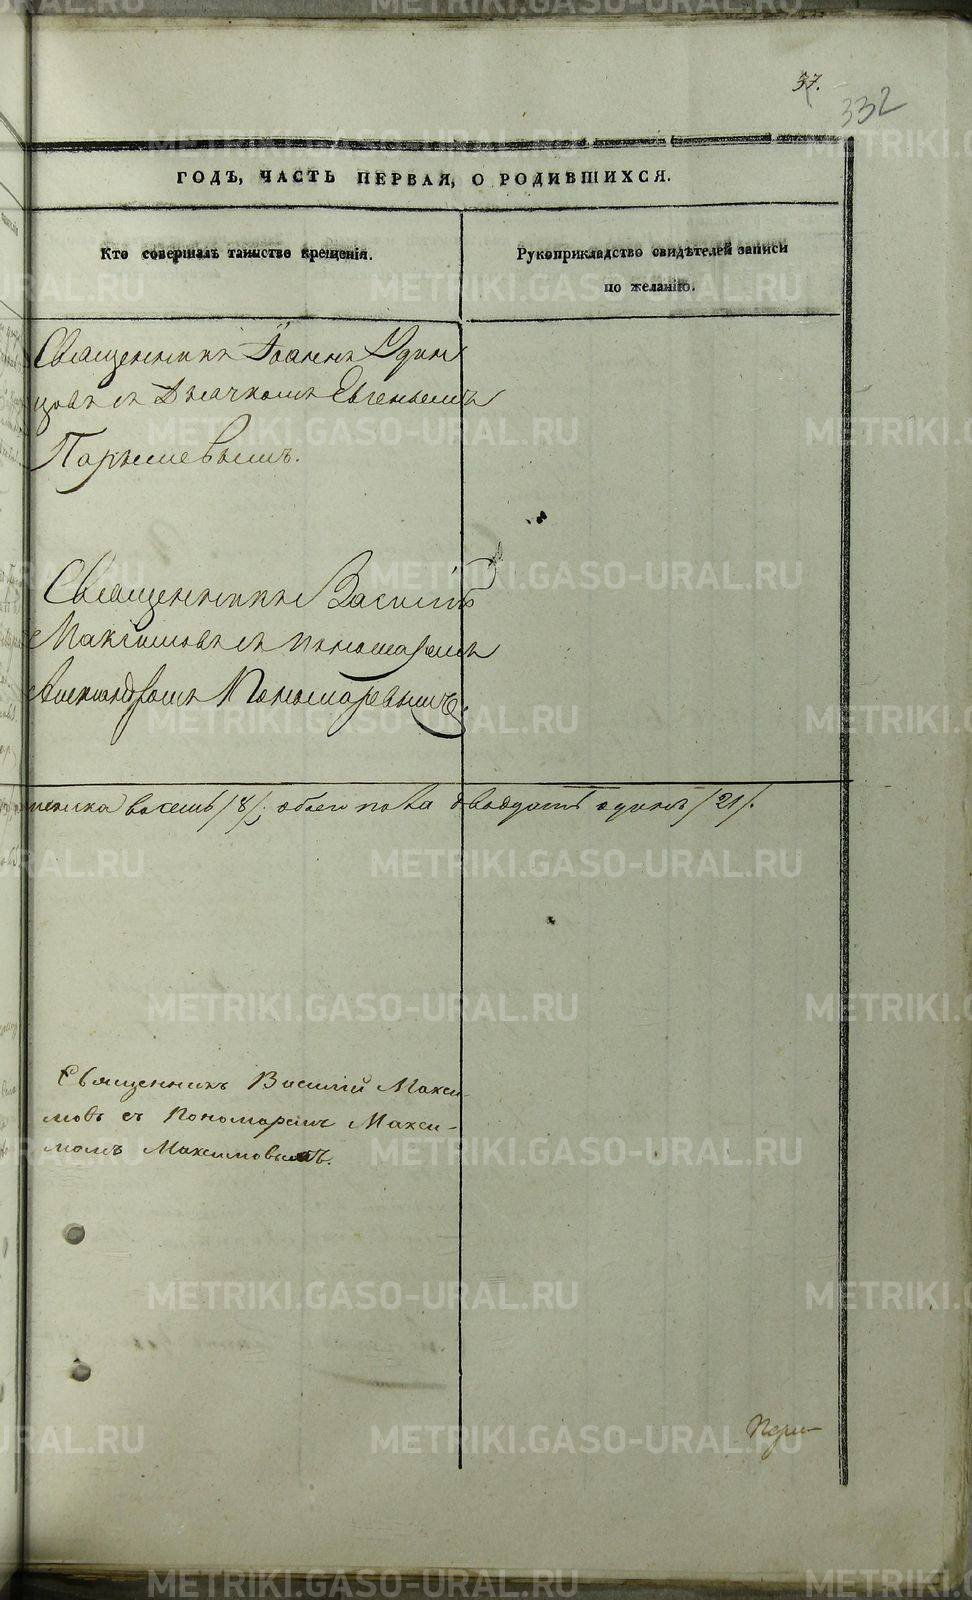 37.
332
ГОДЪ, ЧАСТЬ ПЕРВАЯ, О РОДИВШИХСЯ.
Кто совершалъ таинство крещенія.
Рукоприкладство свидѣтелей записи
по желанію.
Священникъ Іоаннъ Один
цовъ съ Дьячкомъ Евгеньемъ
Парышевымъ.
Священникъ Василій
Максимовъ съ пономаремъ
Александромъ Пономаревымъ.
женска восемь /8/, обоего пола двадцать одинъ /21/.
Священникъ Василій Макси-
мовъ съ Пономаремъ Макси-
момъ Максимовымъ.
METRIKI.GASO-URAL.RU